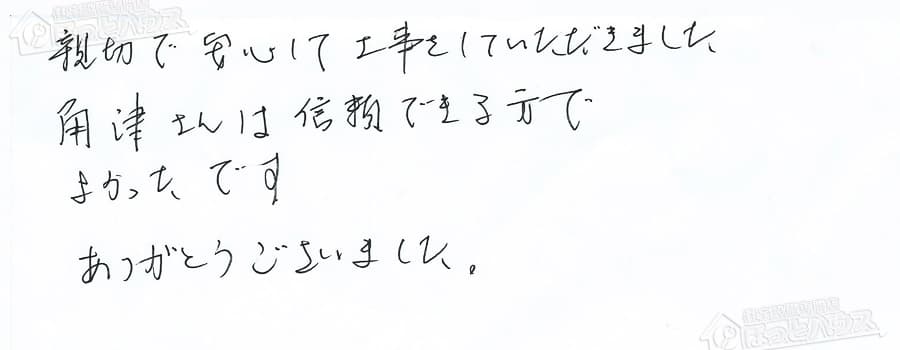 親切で安心して工事をしていただきました
角津さんは信頼できる方で
よかったです
ありがとうございました。
ほっとハウス
ほっとハウス